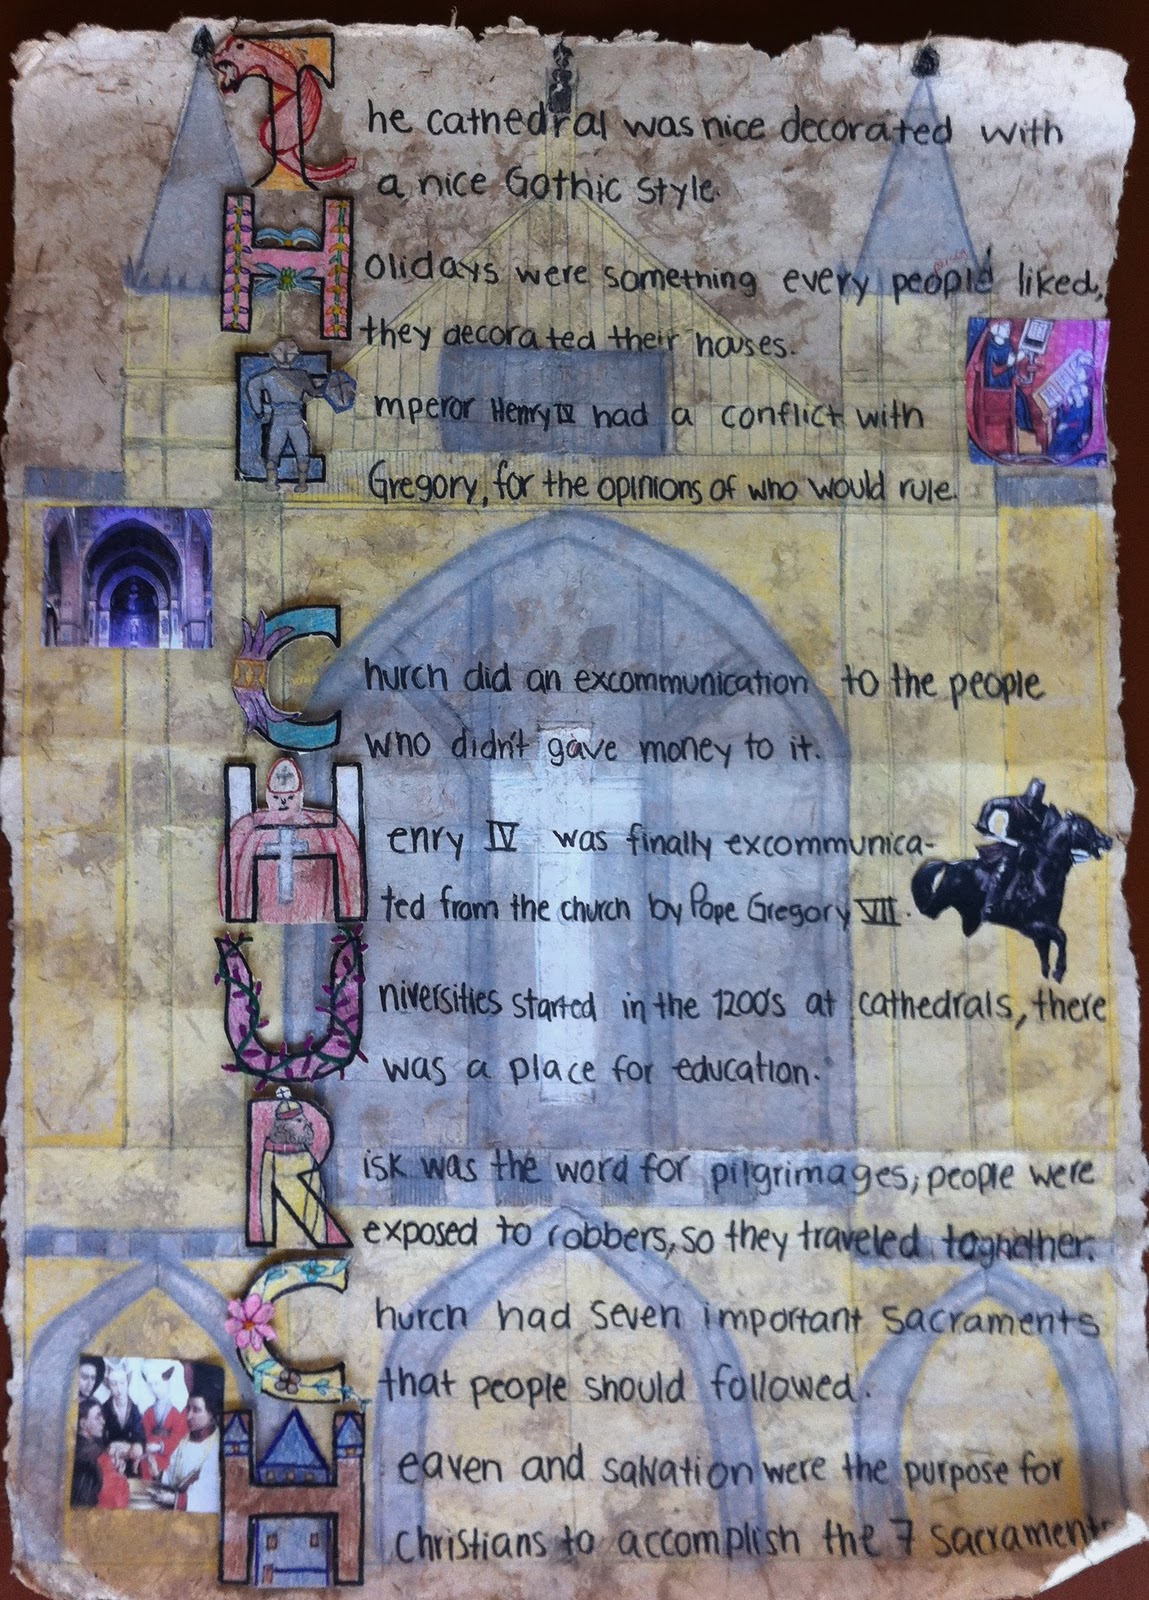 The cathedral was nice decorated with
a nice Gothic style.
Holidays were something every people liked,
they decorated their houses.
Emperor Henry IV had a conflict with
Gregory, for the opinions of who would rule.
Church did an excommunication to the people
who didn't gave money to it.
Henry IV was finally excommunica-
ted from the church by Pope Gregory VII.
Universities started in the 1200's at cathedrals, there
was a place for education.
Risk was the word for pilgrimages, people were
exposed to robbers, so they traveled toghether.
Church had seven important sacraments
that people should followed.
Heaven and salvation were the purpose for
Christians to accomplish the 7 sacraments